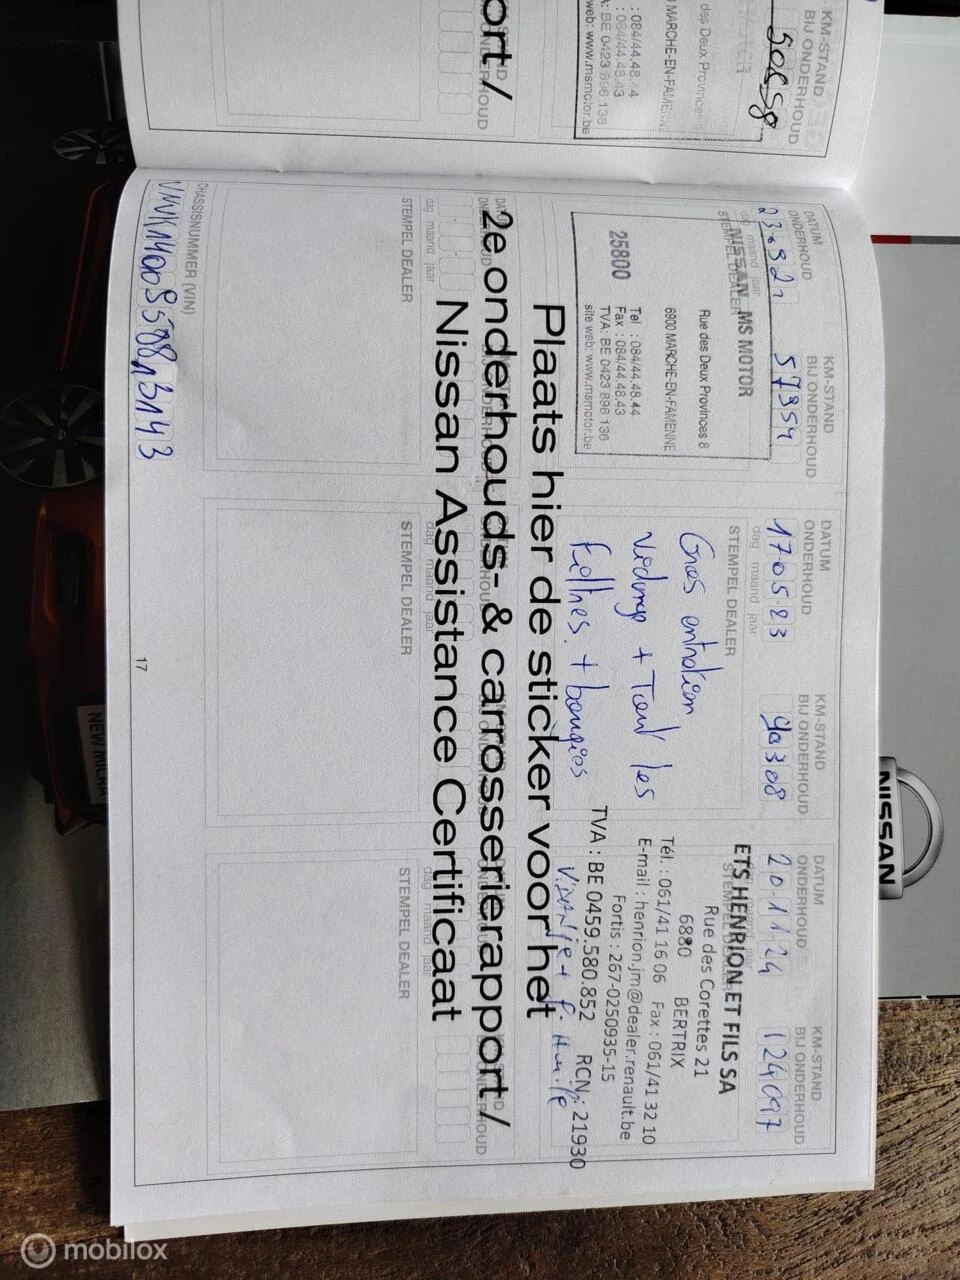 KM-STAND
BIJ ONDERHOUD
50658
des Deux Provinces
MARCHE-EN-FAMENNE
: 084/44.48.44
: 084/44.48.43
A: BE 0423 896 136
web: www.msmotor.be
ort /
DATUM
ONDERHOUD
KM-STAND
BIJ ONDERHOUD
23.09.21
57354
dag maand jaar
STEMPEL DEALER
NISSAN MS MOTOR
Rue des Deux Provinces 8
6900 MARCHE-EN-FAMENNE
Tel : 084/44.48.44
Fax : 084/44.48.43
TVA: BE 0423 896 136
site web: www.msmotor.be
25800
DATUM
ONDERHOUD
KM-STAND
BIJ ONDERHOUD
17.05.23
90308
dag maand jaar
STEMPEL DEALER
Gros entretien
Vidange + Tout les
filtres + bougies
DATUM
ONDERHOUD
KM-STAND
BIJ ONDERHOUD
20.11.24
124097
STEMPEL DEALER
ETS HENRION ET FILS SA
Rue des Corettes 21
6880 BERTRIX
Tél. : 061/41 16 06 Fax : 061/41 32 10
E-mail : henrion.jm@dealer.renault.be
Fortis : 267-0250935-15
TVA : BE 0459.580.852 RCN : 21930
Plaats hier de sticker voor het
2e onderhouds- & carrosserierapport /
Nissan Assistance Certificaat
dag maand jaar
STEMPEL DEALER
dag maand jaar
STEMPEL DEALER
dag maand jaar
STEMPEL DEALER
CHASSISNUMMER (VIN)
17
NEW MICRA
NISSAN
mobilox